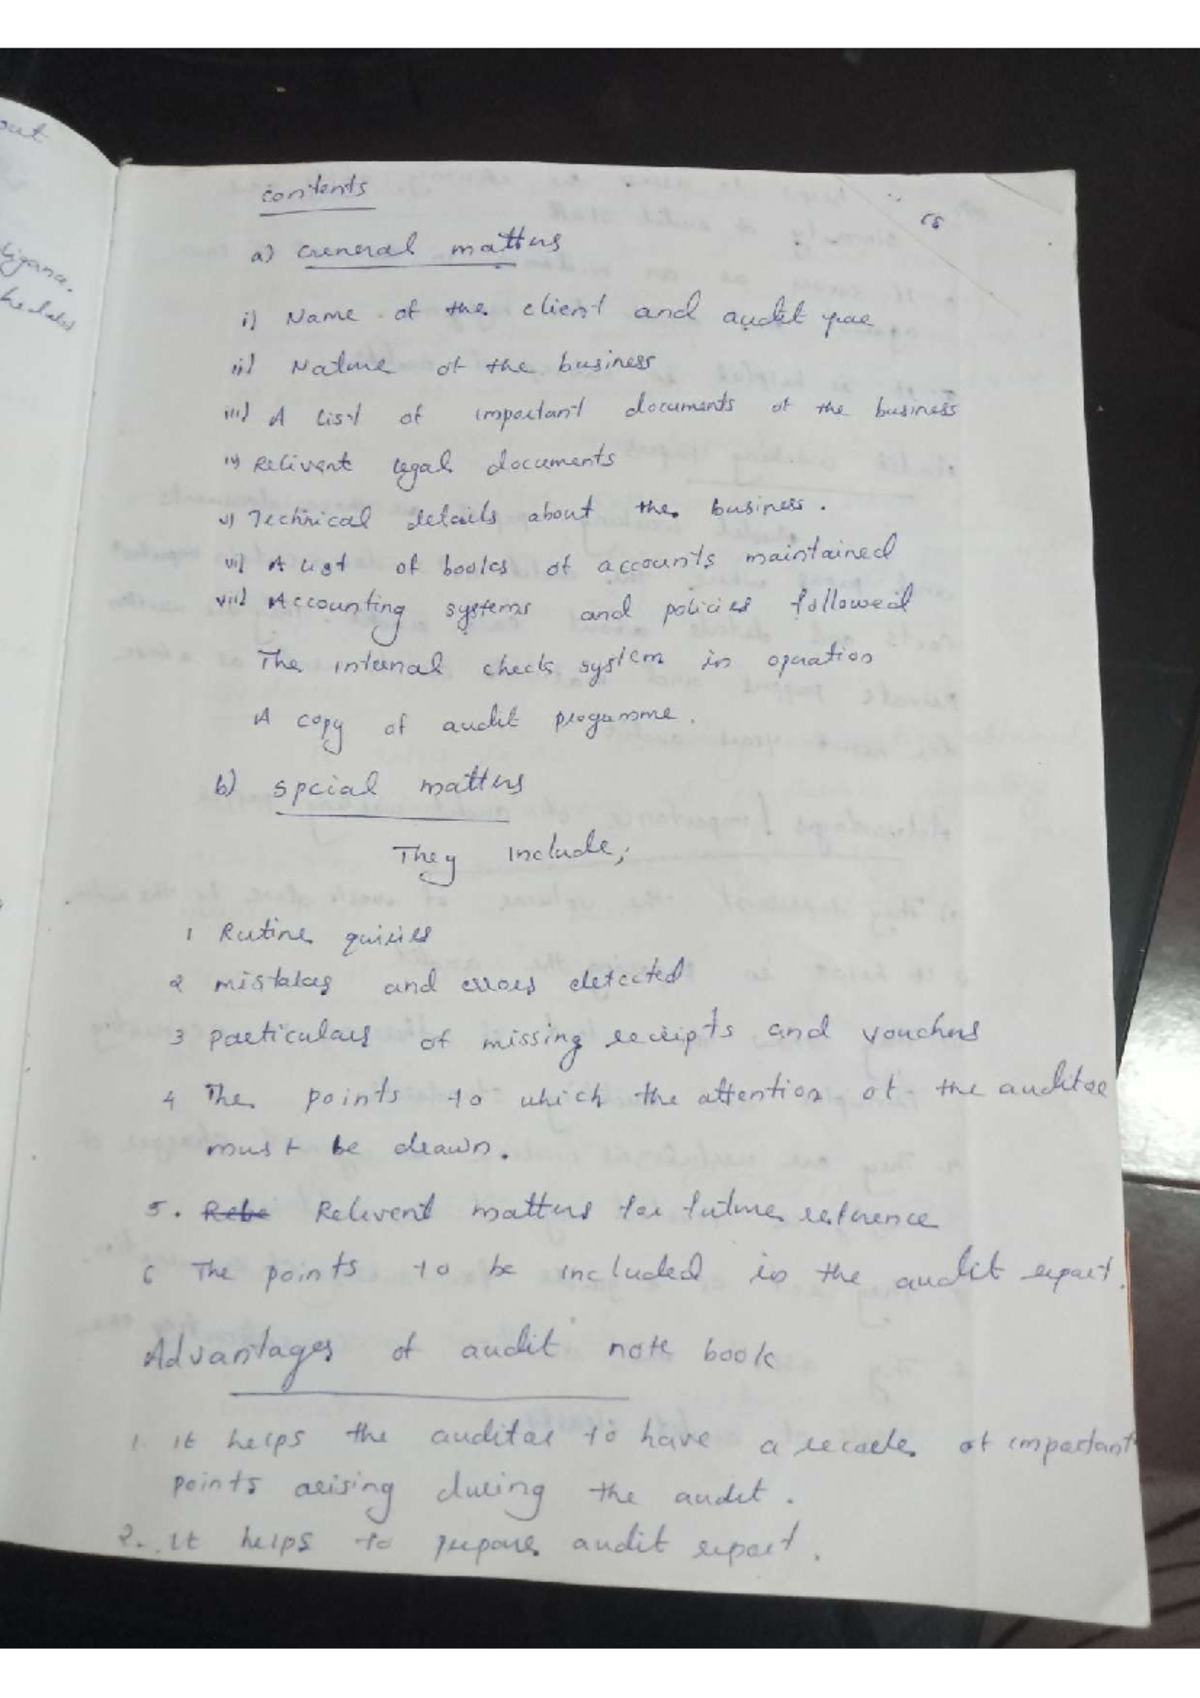 out
ligana.
contents
68
a) General matters
i) Name of the client and audit year
ii) Nature of the business
iii) A list of important documents of the business
iv) Relivent legal documents
v) Technical details about the business.
vi) A list of books of accounts maintained
viii) Accounting systems and policies followed
The internal check system in operation
A copy of audit programme.
b) spcial matters
They include;
1 Rutine quiries
2 mistakes and errors detected
3 particulars of missing receipts and vouchers
4 The points to which the attention of the auditor
must be drawn.
5. Rebe Relivent matters for future reference
6 The points to be included in the audit report.
Advantages of audit note book
1. it helps the auditor to have a recorde of important
points arising during the audit.
2. it helps to prepare audit report.